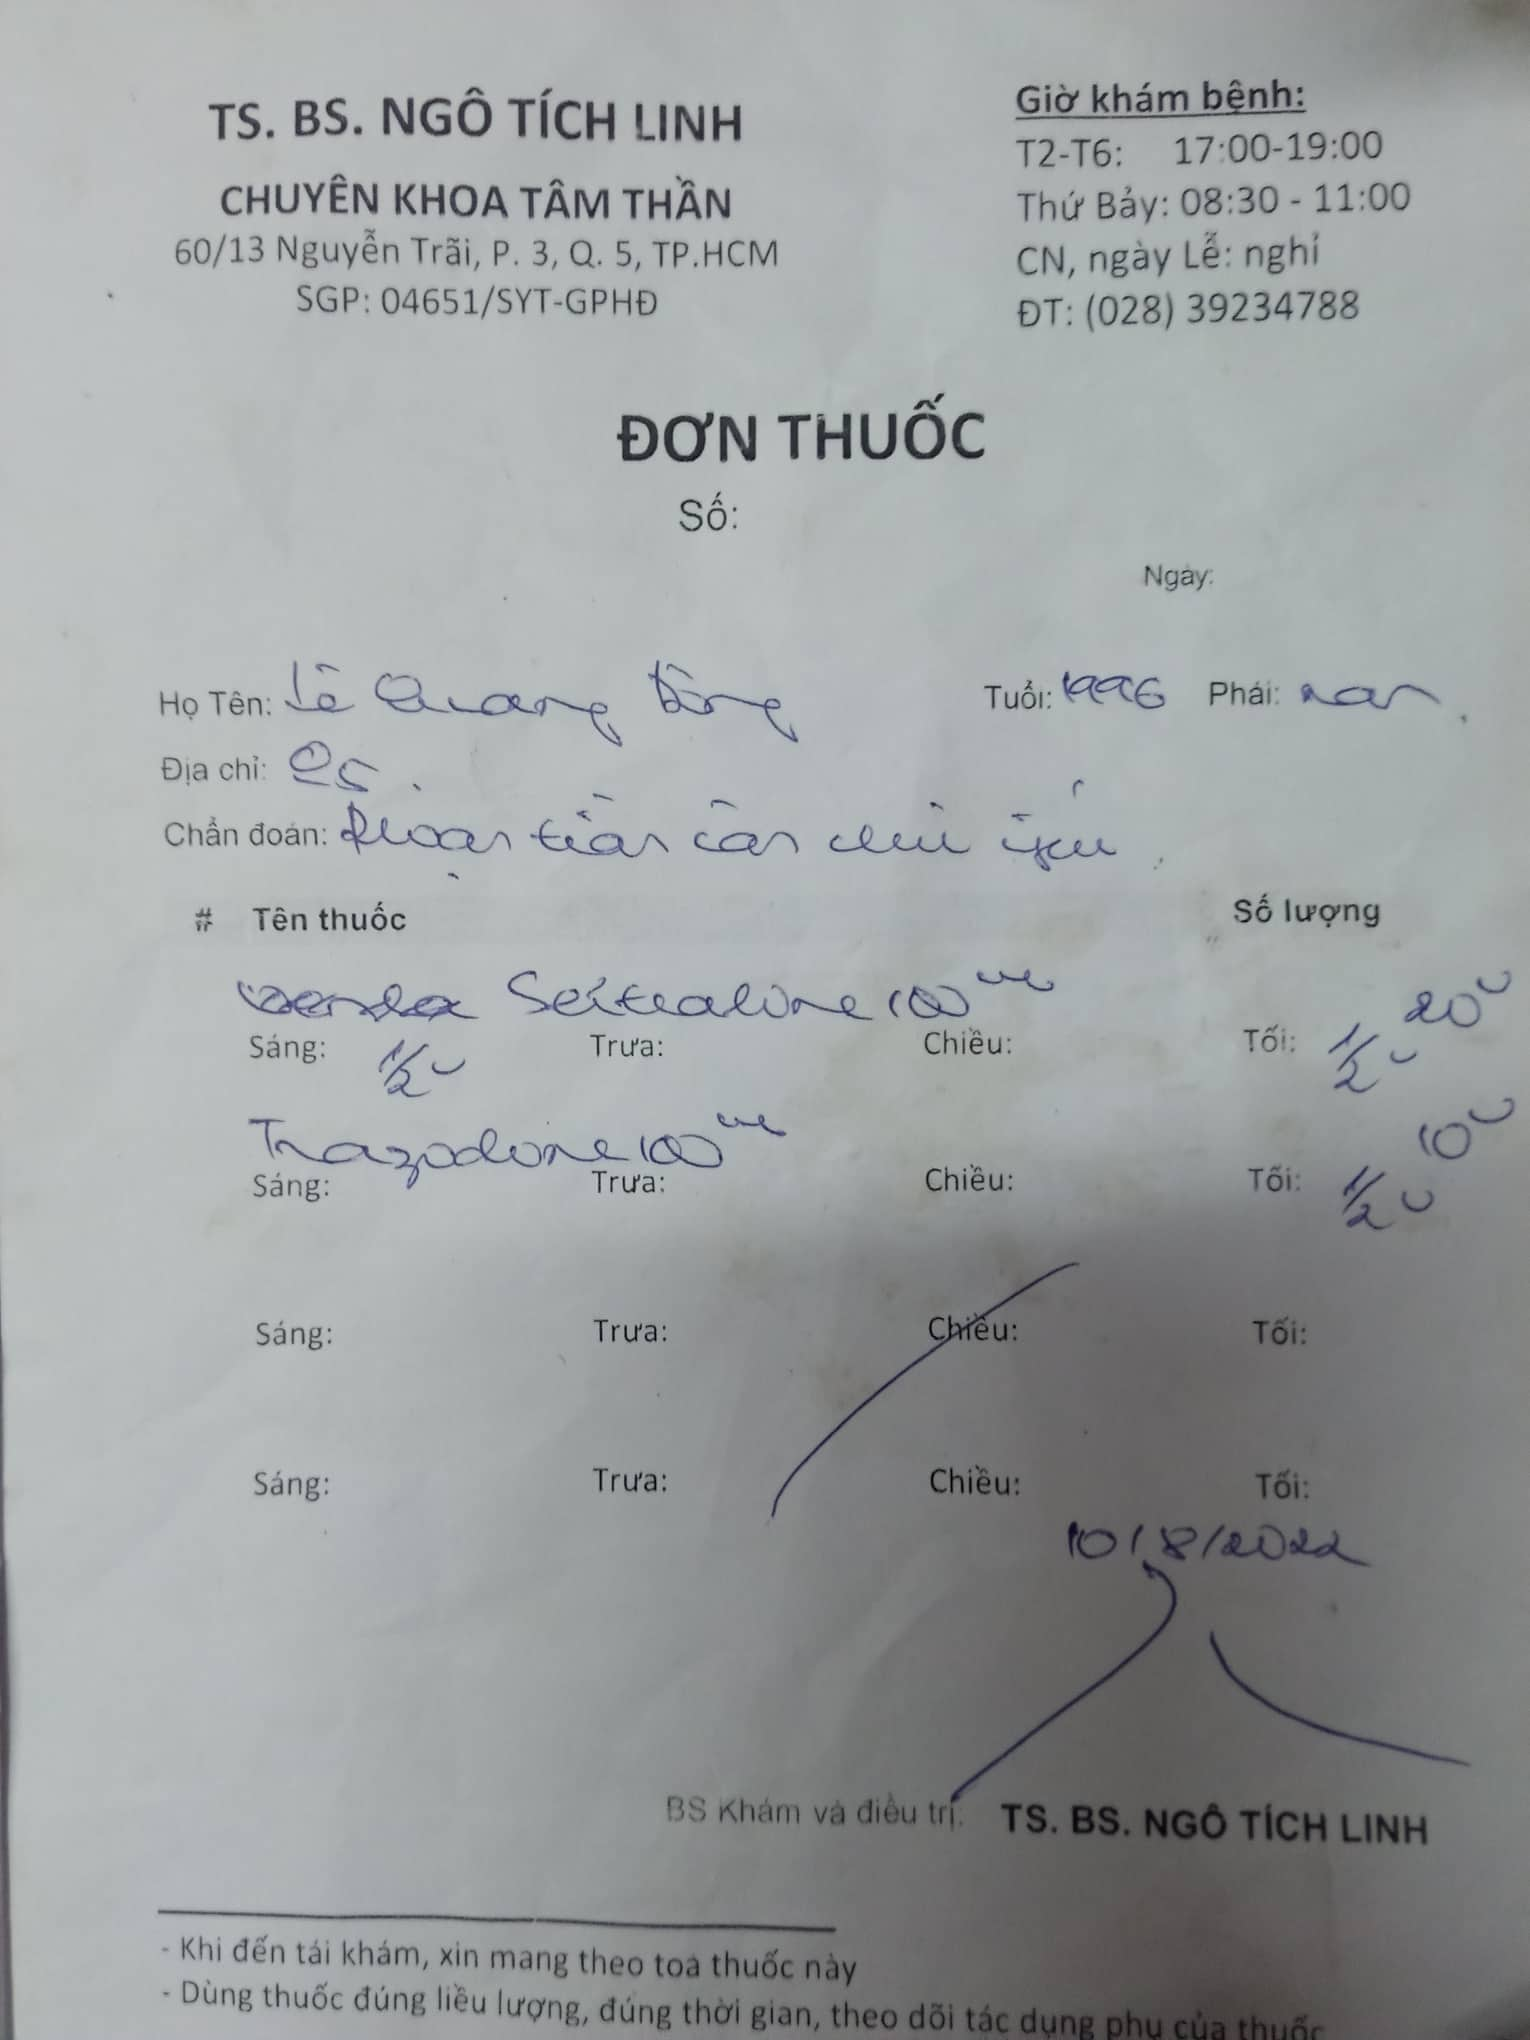 TS. BS. NGÔ TÍCH LINH
CHUYÊN KHOA TÂM THẦN
60/13 Nguyễn Trãi, P. 3, Q. 5, TP.HCM
SGP: 04651/SYT-GPHĐ
Giờ khám bệnh:
T2-T6: 17:00-19:00
Thứ Bảy: 08:30 - 11:00
CN, ngày Lễ: nghỉ
ĐT: (028) 39234788
ĐƠN THUỐC
Số:
Ngày:
Họ Tên: Lê Quang Tuổi: 1996 Phái: nam
Địa chỉ: Q5
Chẩn đoán:
# Tên thuốc Số lượng
Sertraline 100mg 20v
Sáng: 1/2v Trưa: Chiều: Tối: 1/2v
Trazodone 100mg 10v
Sáng: Trưa: Chiều: Tối: 1/2v
Sáng: Trưa: Chiều: Tối:
Sáng: Trưa: Chiều: Tối:
10/8/2022
BS Khám và điều trị: TS. BS. NGÔ TÍCH LINH
- Khi đến tái khám, xin mang theo toa thuốc này
- Dùng thuốc đúng liều lượng, đúng thời gian, theo dõi tác dụng phụ của thuốc